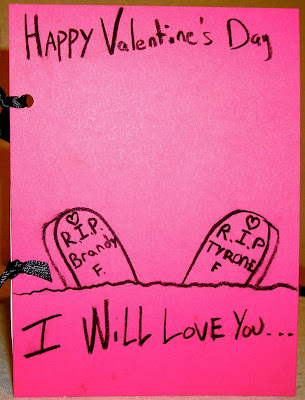 Happy Valentine's Day
R.I.P.
Brandy
F.
R.I.P
Tyrone
F
I Will Love You...